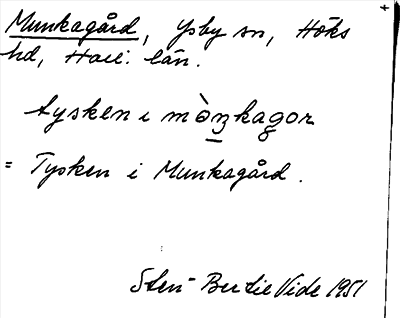 Munkagård, Ysby sn, Höks
hd, Hall. län.
tysken i mòŋkagor
= Tysken i Munkagård.
Sten-Bertil Vide 1951